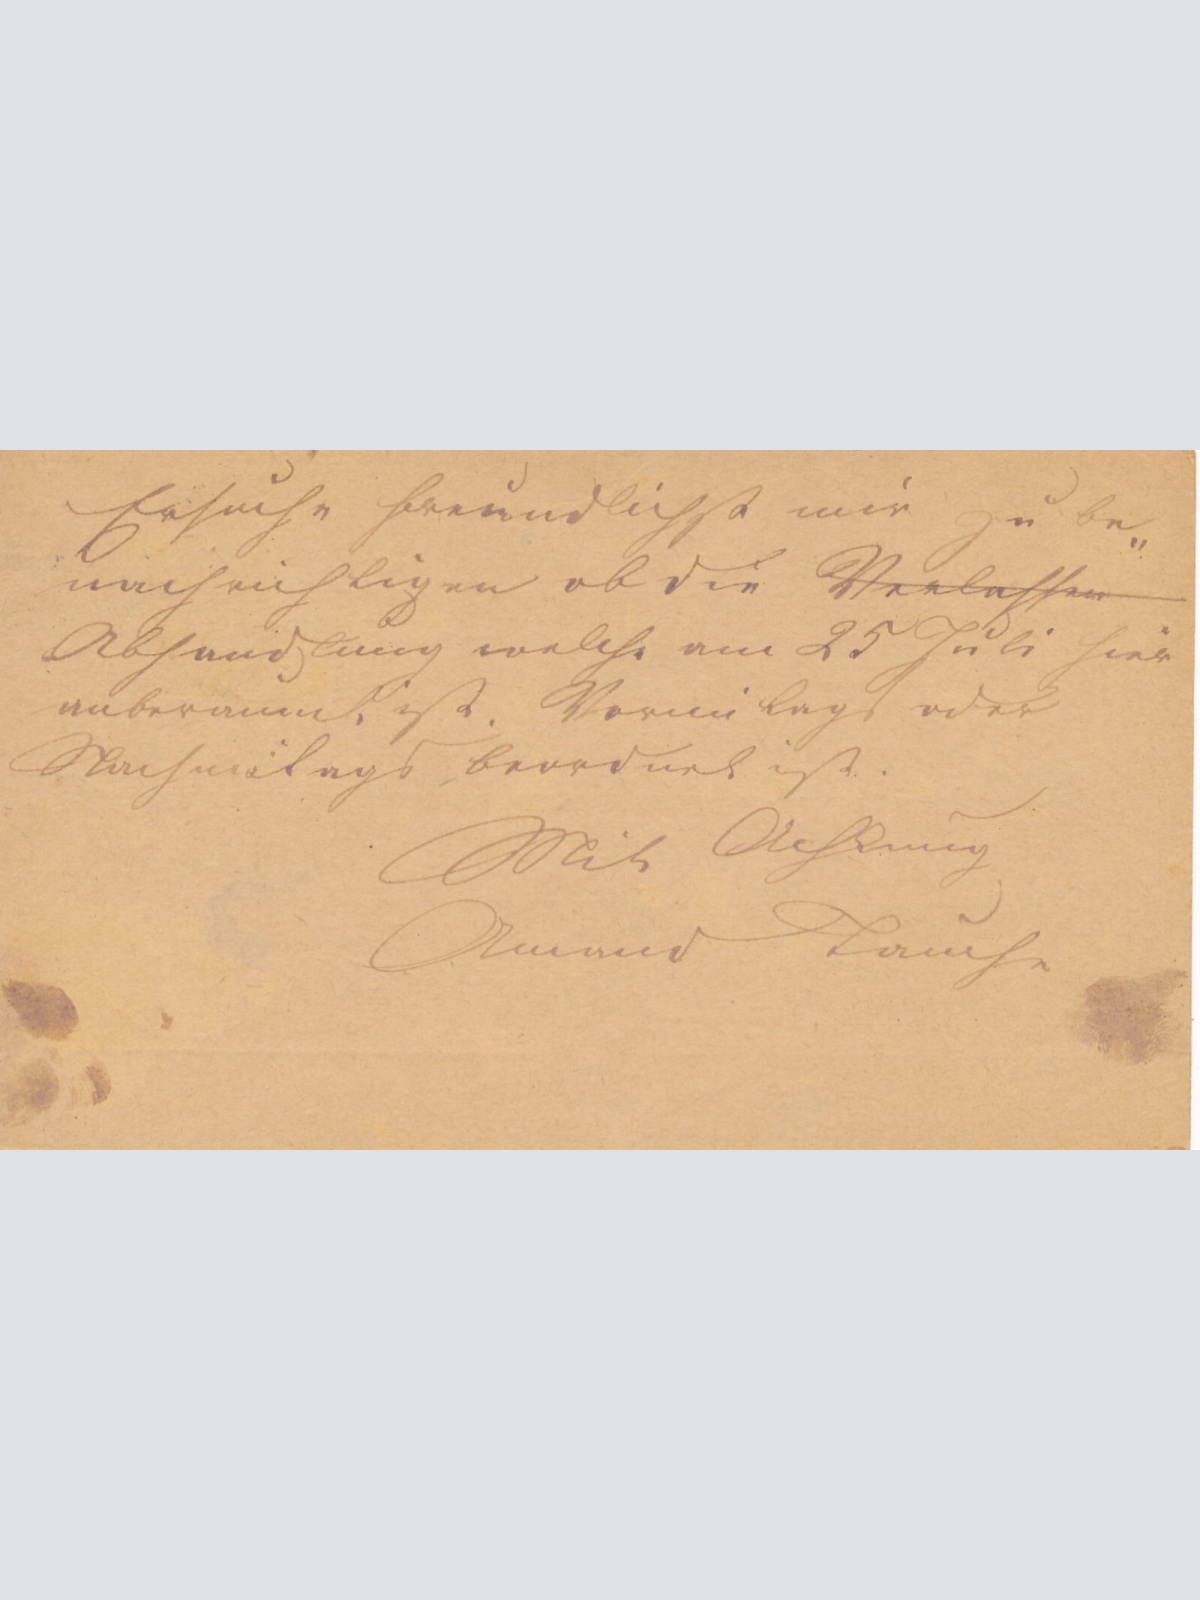 Ersuche freundlichst mir zu be„
nachrichtigen ob die Verlassen
Abhandlung welche am 25 Juli hier
anberaumt ist. Vormitags oder
Nachmitags beordnet ist.
Mit Achtung
Amand Tauche